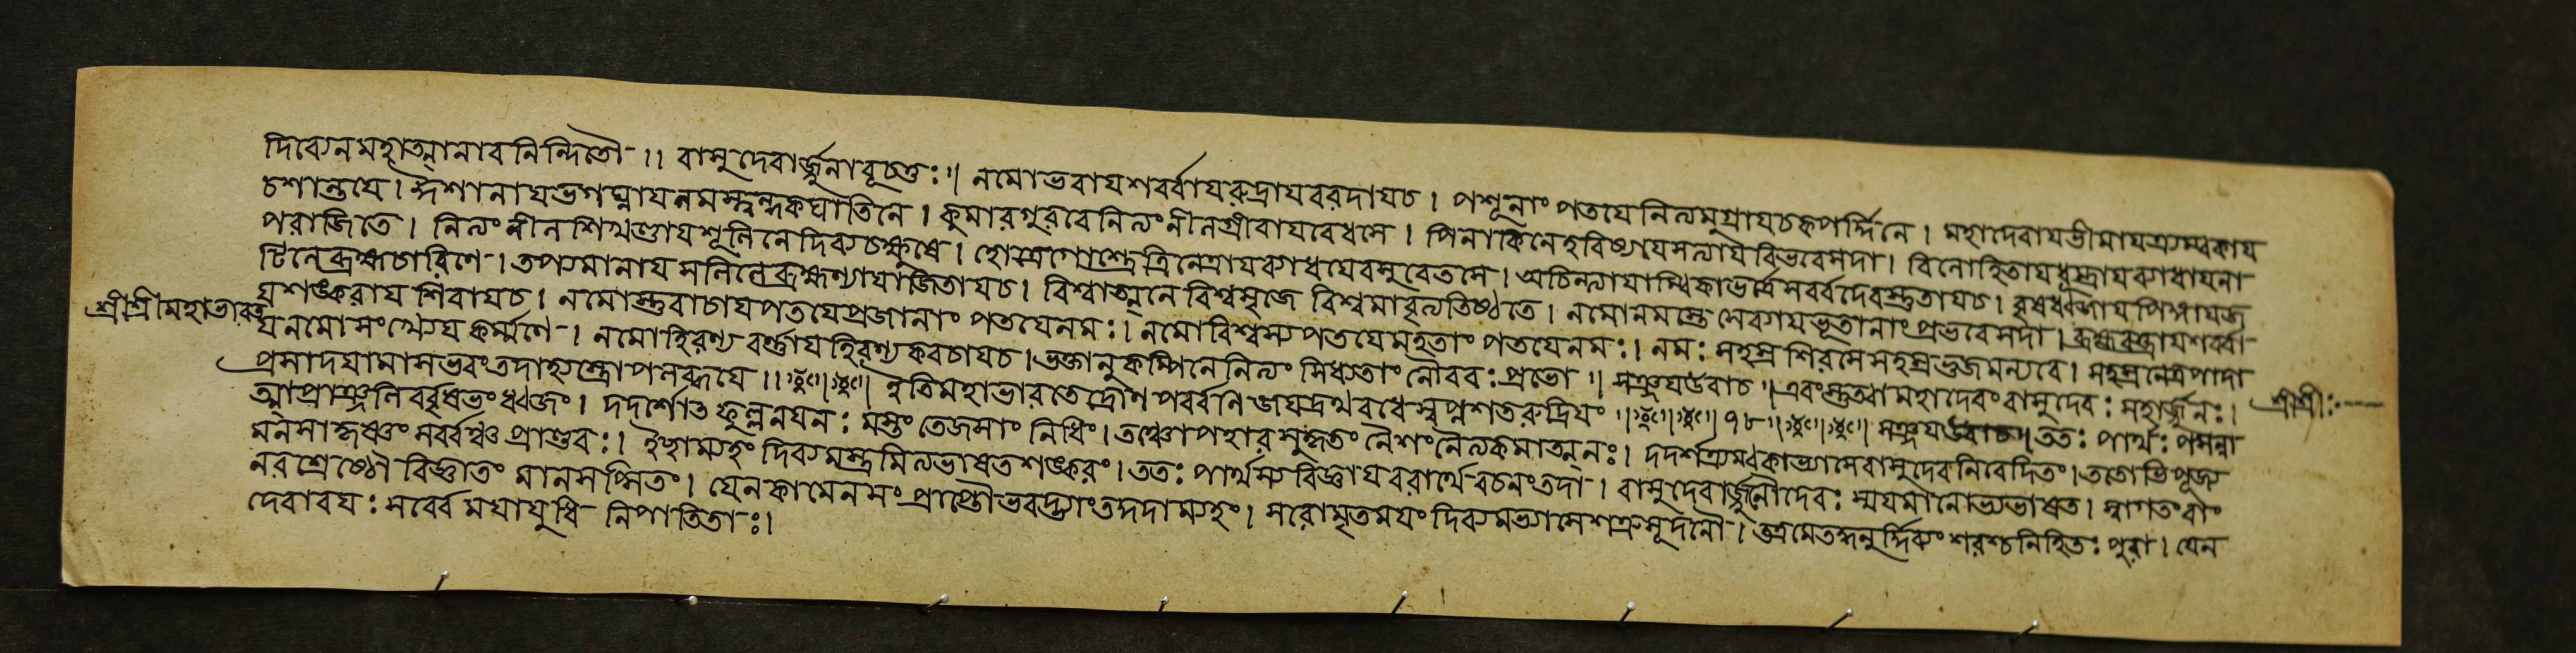 দিব্যেন মহাত্মানাবনিন্দিতৌ ।। বাসুদেবার্জ্জুনাবূচতুঃ ॥ নমোভবাযশর্ব্বাযরুদ্রাযবরদাযচ । পশূনাং পতযেনিত্যমুগ্রাযচকপর্দ্দিনে । মহাদেবাযভীমাযত্র্যম্বকায
চশান্তযে । ঈশানাযভগঘ্নাযনমস্ত্বন্ধকঘাতিনে । কুমারগুরবেনিত্যংনীলগ্রীবাযবেধসে । পিনাকিনেহবিষ্যাযসত্যাযবিভবেসদা । বিলোহিতাযধূম্রাযব্যাধাযনা
পরাজিতে । নিত্যংনীলশিখণ্ডাযশূলিনেদিব্যচক্ষুষে । হোত্রেপোত্রেত্রিনেত্রাযব্যাধযেবসুরেতসে । অচিন্ত্যাযাম্বিকাভর্ত্রেসর্ব্বদেবস্তুতাযচ । বৃষধ্বজাযপিঙ্গাযজ
টিনেব্রহ্মচারিণে । তপ্যমানাযসলিলেব্রহ্মণ্যাযাজিতাযচ । বিশ্বাত্মনে বিশ্বসৃজে বিশ্বমাবৃত্যতিষ্ঠতে । নমোনমস্তেসেব্যাযভূতানাংপ্রভবেসদা । ব্রহ্মবক্ত্রাযশর্ব্বা
যশঙ্করায শিবাযচ । নমোস্তুবাচাযপতযেপ্রজানাং পতযেনমঃ । নমোবিশ্বস্যপতযেমহতাং পতযেনমঃ । নমঃ সহস্রশিরসেসহস্রভুজমন্যবে । সহস্রনেত্রপাদা
শ্রীশ্রীমহাভারত
যনমোসংখ্যেযকর্ম্মণে । নমোহিরণ্য বর্ণ্ণাযহিরণ্যকবচাযচ । ভক্তানুকম্পিনেনিত্যং সিধ্যতাং নৌবরঃ প্রভো ॥ সঞ্জযউবাচ ॥ এবংস্তুত্বামহাদেবংবাসুদেবঃ সহার্জ্জুনঃ ।
শ্রীশ্রীঃ
প্রসাদযামাসভবংতদাহ্যস্ত্রোপলব্ধযে ।। ইতিমহাভারতেদ্রোণ পর্ব্বনিজযদ্রথবধেস্বপ্নশতরুদ্রিযং ॥ ৭৮ ॥ সঞ্জযউবাচ ॥ ততঃ পার্থঃ প্রসন্না
ত্মাপ্রাঞ্জলির্ব্বৃষভংধ্বজং । দদর্শোত্ফুল্লনযনঃ সমস্তং তেজসাং নিধিং । তঞ্চোপহারংসুকৃতং নৈশংনৈত্যকমাত্মনঃ । দদর্শত্র্যম্বকাভ্যাসেবাসুদেবনিবেদিতং । ততোভিপূজ্য
মনসাকৃষ্ণং সর্ব্বঞ্চ পাণ্ডবঃ । ইচ্ছাম্যহং দিব্যমস্ত্রমিত্যভাষতশঙ্করং । ততঃ পার্থস্যবিজ্ঞাযবরার্থেবচনংতদা । বাসুদেবার্জ্জুনৌদেবঃ স্মযমানোভ্যভাষত । স্বাগতংবাং
নরশ্রেষ্ঠৌ বিজ্ঞাতং মানসেপ্সিতং । যেনকামেনসংপ্রাপ্তৌভবদ্ভ্যাংতদ্দদাম্যহং । সরোমৃতমযং দিব্যমভ্যাসেশত্রুসূদনৌ । তত্রমেতদ্ধনুর্দ্দিব্যং শরশ্চনিহিতঃ পুরা । যেন
দেবারযঃ সর্ব্বে মযাযুধি নিপাতিতাঃ ।